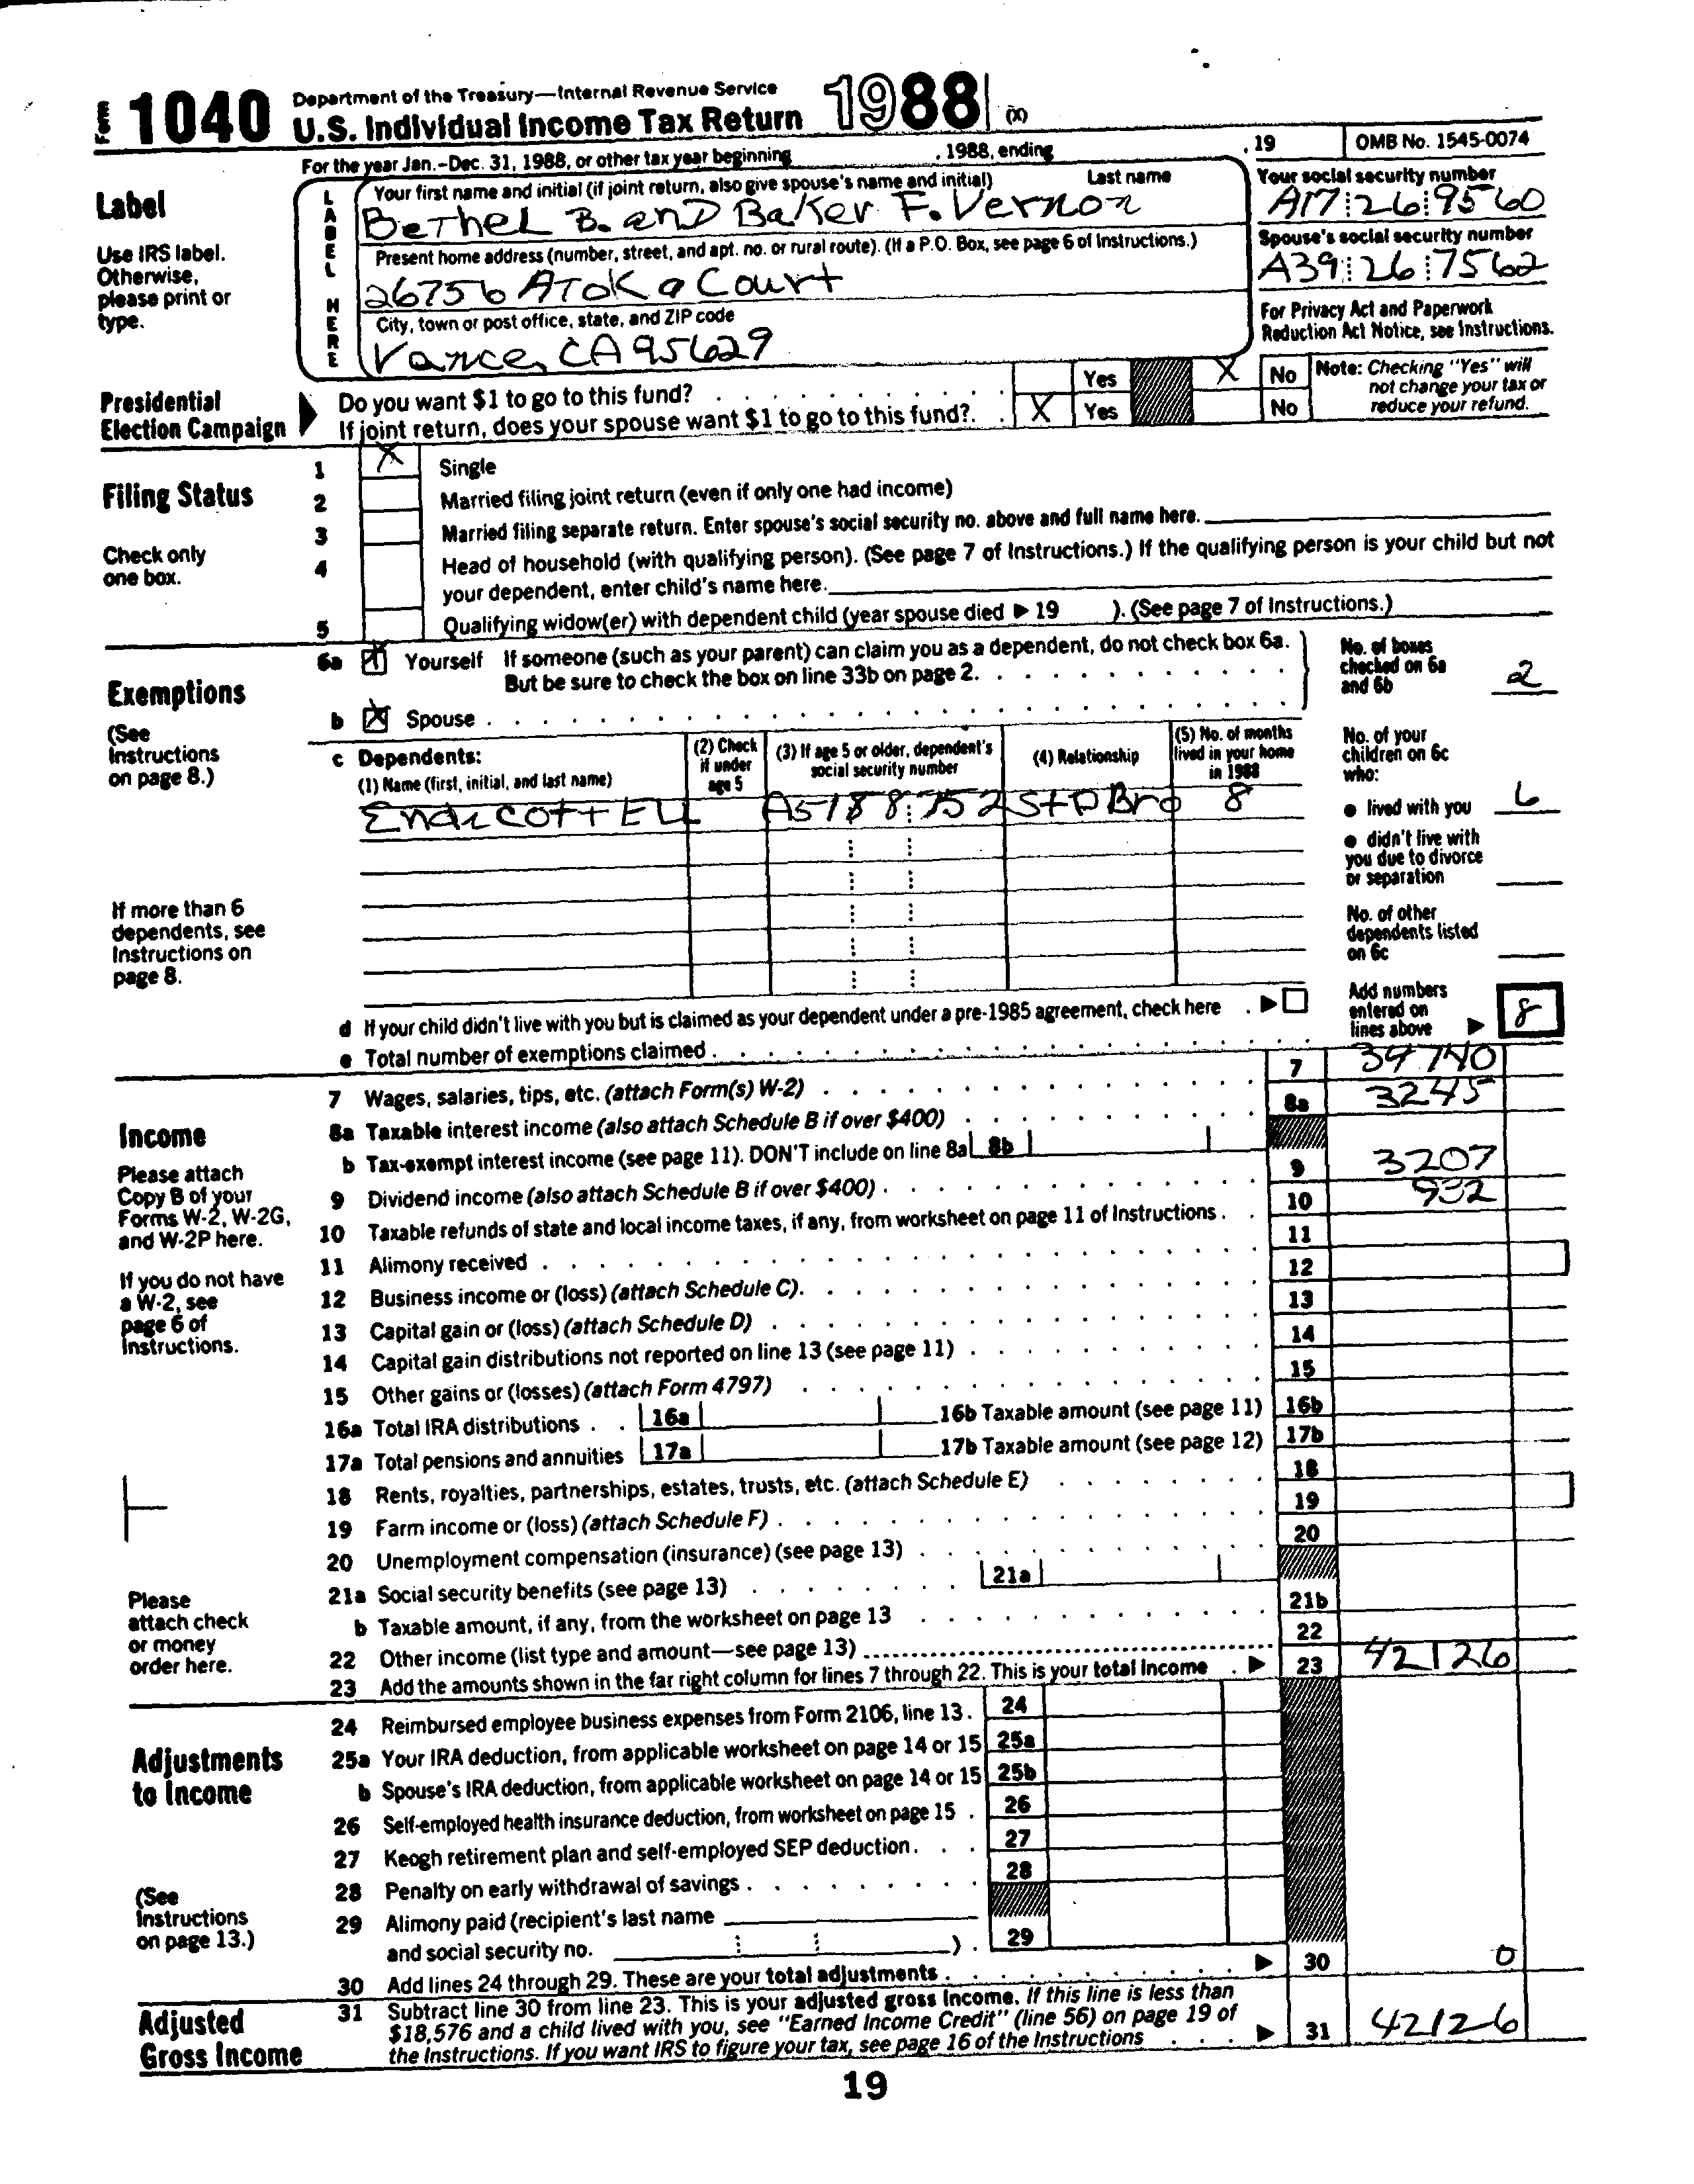 Form 1040 Department of the Treasury—Internal Revenue Service
U.S. Individual Income Tax Return 1988 (X)
For the year Jan.-Dec. 31, 1988, or other tax year beginning , 1988, ending , 19 OMB No. 1545-0074
Label
Use IRS label.
Otherwise,
please print or
type.
LABEL HERE
Your first name and initial (if joint return, also give spouse's name and initial) Last name
Bethel B. and Baker F. Vernon
Your social security number
A17 26 9560
Present home address (number, street, and apt. no. or rural route). (If a P.O. Box, see page 6 of Instructions.)
26756 Atoka Court
Spouse's social security number
A39 26 7562
City, town or post office, state, and ZIP code
Vance, CA 95629
For Privacy Act and Paperwork
Reduction Act Notice, see Instructions.
Presidential
Election Campaign
Do you want $1 to go to this fund? Yes X No
If joint return, does your spouse want $1 to go to this fund? X Yes No
Note: Checking "Yes" will
not change your tax or
reduce your refund.
Filing Status
Check only
one box.
1 X Single
2 Married filing joint return (even if only one had income)
3 Married filing separate return. Enter spouse's social security no. above and full name here.
4 Head of household (with qualifying person). (See page 7 of Instructions.) If the qualifying person is your child but not
your dependent, enter child's name here.
5 Qualifying widow(er) with dependent child (year spouse died ▶ 19 ). (See page 7 of Instructions.)
Exemptions
(See
Instructions
on page 8.)
6a X Yourself If someone (such as your parent) can claim you as a dependent, do not check box 6a.
But be sure to check the box on line 33b on page 2.
b X Spouse
No. of boxes
checked on 6a
and 6b 2
c Dependents:
(1) Name (first, initial, and last name)
(2) Check
if under
age 5
(3) If age 5 or older, dependent's
social security number
(4) Relationship
(5) No. of months
lived in your home
in 1988
Endicott Ell A5188 752 StpBro 8
No. of your
children on 6c
who:
● lived with you 6
● didn't live with
you due to divorce
or separation
No. of other
dependents listed
on 6c
If more than 6
dependents, see
Instructions on
page 8.
d If your child didn't live with you but is claimed as your dependent under a pre-1985 agreement, check here ▶
e Total number of exemptions claimed
Add numbers
entered on
lines above ▶ 8
Income
Please attach
Copy B of your
Forms W-2, W-2G,
and W-2P here.
If you do not have
a W-2, see
page 6 of
Instructions.
Please
attach check
or money
order here.
7 Wages, salaries, tips, etc. (attach Form(s) W-2) 7 34740
8a Taxable interest income (also attach Schedule B if over $400) 8a 3245
b Tax-exempt interest income (see page 11). DON'T include on line 8a 8b
9 Dividend income (also attach Schedule B if over $400) 9 3207
10 Taxable refunds of state and local income taxes, if any, from worksheet on page 11 of Instructions 10 932
11 Alimony received 11
12 Business income or (loss) (attach Schedule C) 12
13 Capital gain or (loss) (attach Schedule D) 13
14 Capital gain distributions not reported on line 13 (see page 11) 14
15 Other gains or (losses) (attach Form 4797) 15
16a Total IRA distributions 16a 16b Taxable amount (see page 11) 16b
17a Total pensions and annuities 17a 17b Taxable amount (see page 12) 17b
18 Rents, royalties, partnerships, estates, trusts, etc. (attach Schedule E) 18
19 Farm income or (loss) (attach Schedule F) 19
20 Unemployment compensation (insurance) (see page 13) 20
21a Social security benefits (see page 13) 21a
b Taxable amount, if any, from the worksheet on page 13 21b
22 Other income (list type and amount—see page 13) 22
23 Add the amounts shown in the far right column for lines 7 through 22. This is your total income ▶ 23 42126
Adjustments
to Income
(See
Instructions
on page 13.)
24 Reimbursed employee business expenses from Form 2106, line 13. 24
25a Your IRA deduction, from applicable worksheet on page 14 or 15 25a
b Spouse's IRA deduction, from applicable worksheet on page 14 or 15 25b
26 Self-employed health insurance deduction, from worksheet on page 15 26
27 Keogh retirement plan and self-employed SEP deduction 27
28 Penalty on early withdrawal of savings 28
29 Alimony paid (recipient's last name
and social security no. ) 29
30 Add lines 24 through 29. These are your total adjustments ▶ 30 0
Adjusted
Gross Income
31 Subtract line 30 from line 23. This is your adjusted gross income. If this line is less than
$18,576 and a child lived with you, see "Earned Income Credit" (line 56) on page 19 of
the Instructions. If you want IRS to figure your tax, see page 16 of the Instructions ▶ 31 42126
19